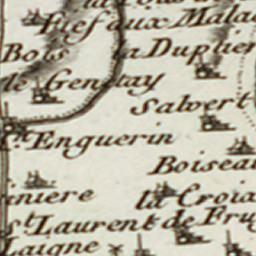 Fief aux Malad
Bois
la Duplier
le Genetay
Salvert
Enguerin
Boiseau
iniere
la Croix
St Laurent de Fru
Laigne